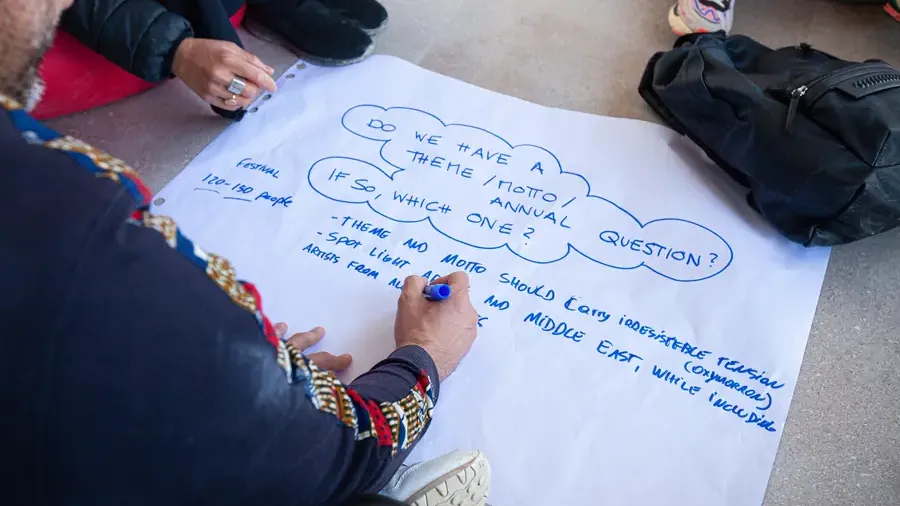 DO WE HAVE A
THEME / MOTTO /
ANNUAL QUESTION?
IF SO, WHICH ONE?
FESTIVAL
120-150 people
- THEME AND MOTTO SHOULD CARRY IRRESISTEBLE TENSION
(OXYMORRON)
- SPOT LIGHT AND MIDDLE EAST, WHILE INCLUDING
ARTISTS FROM